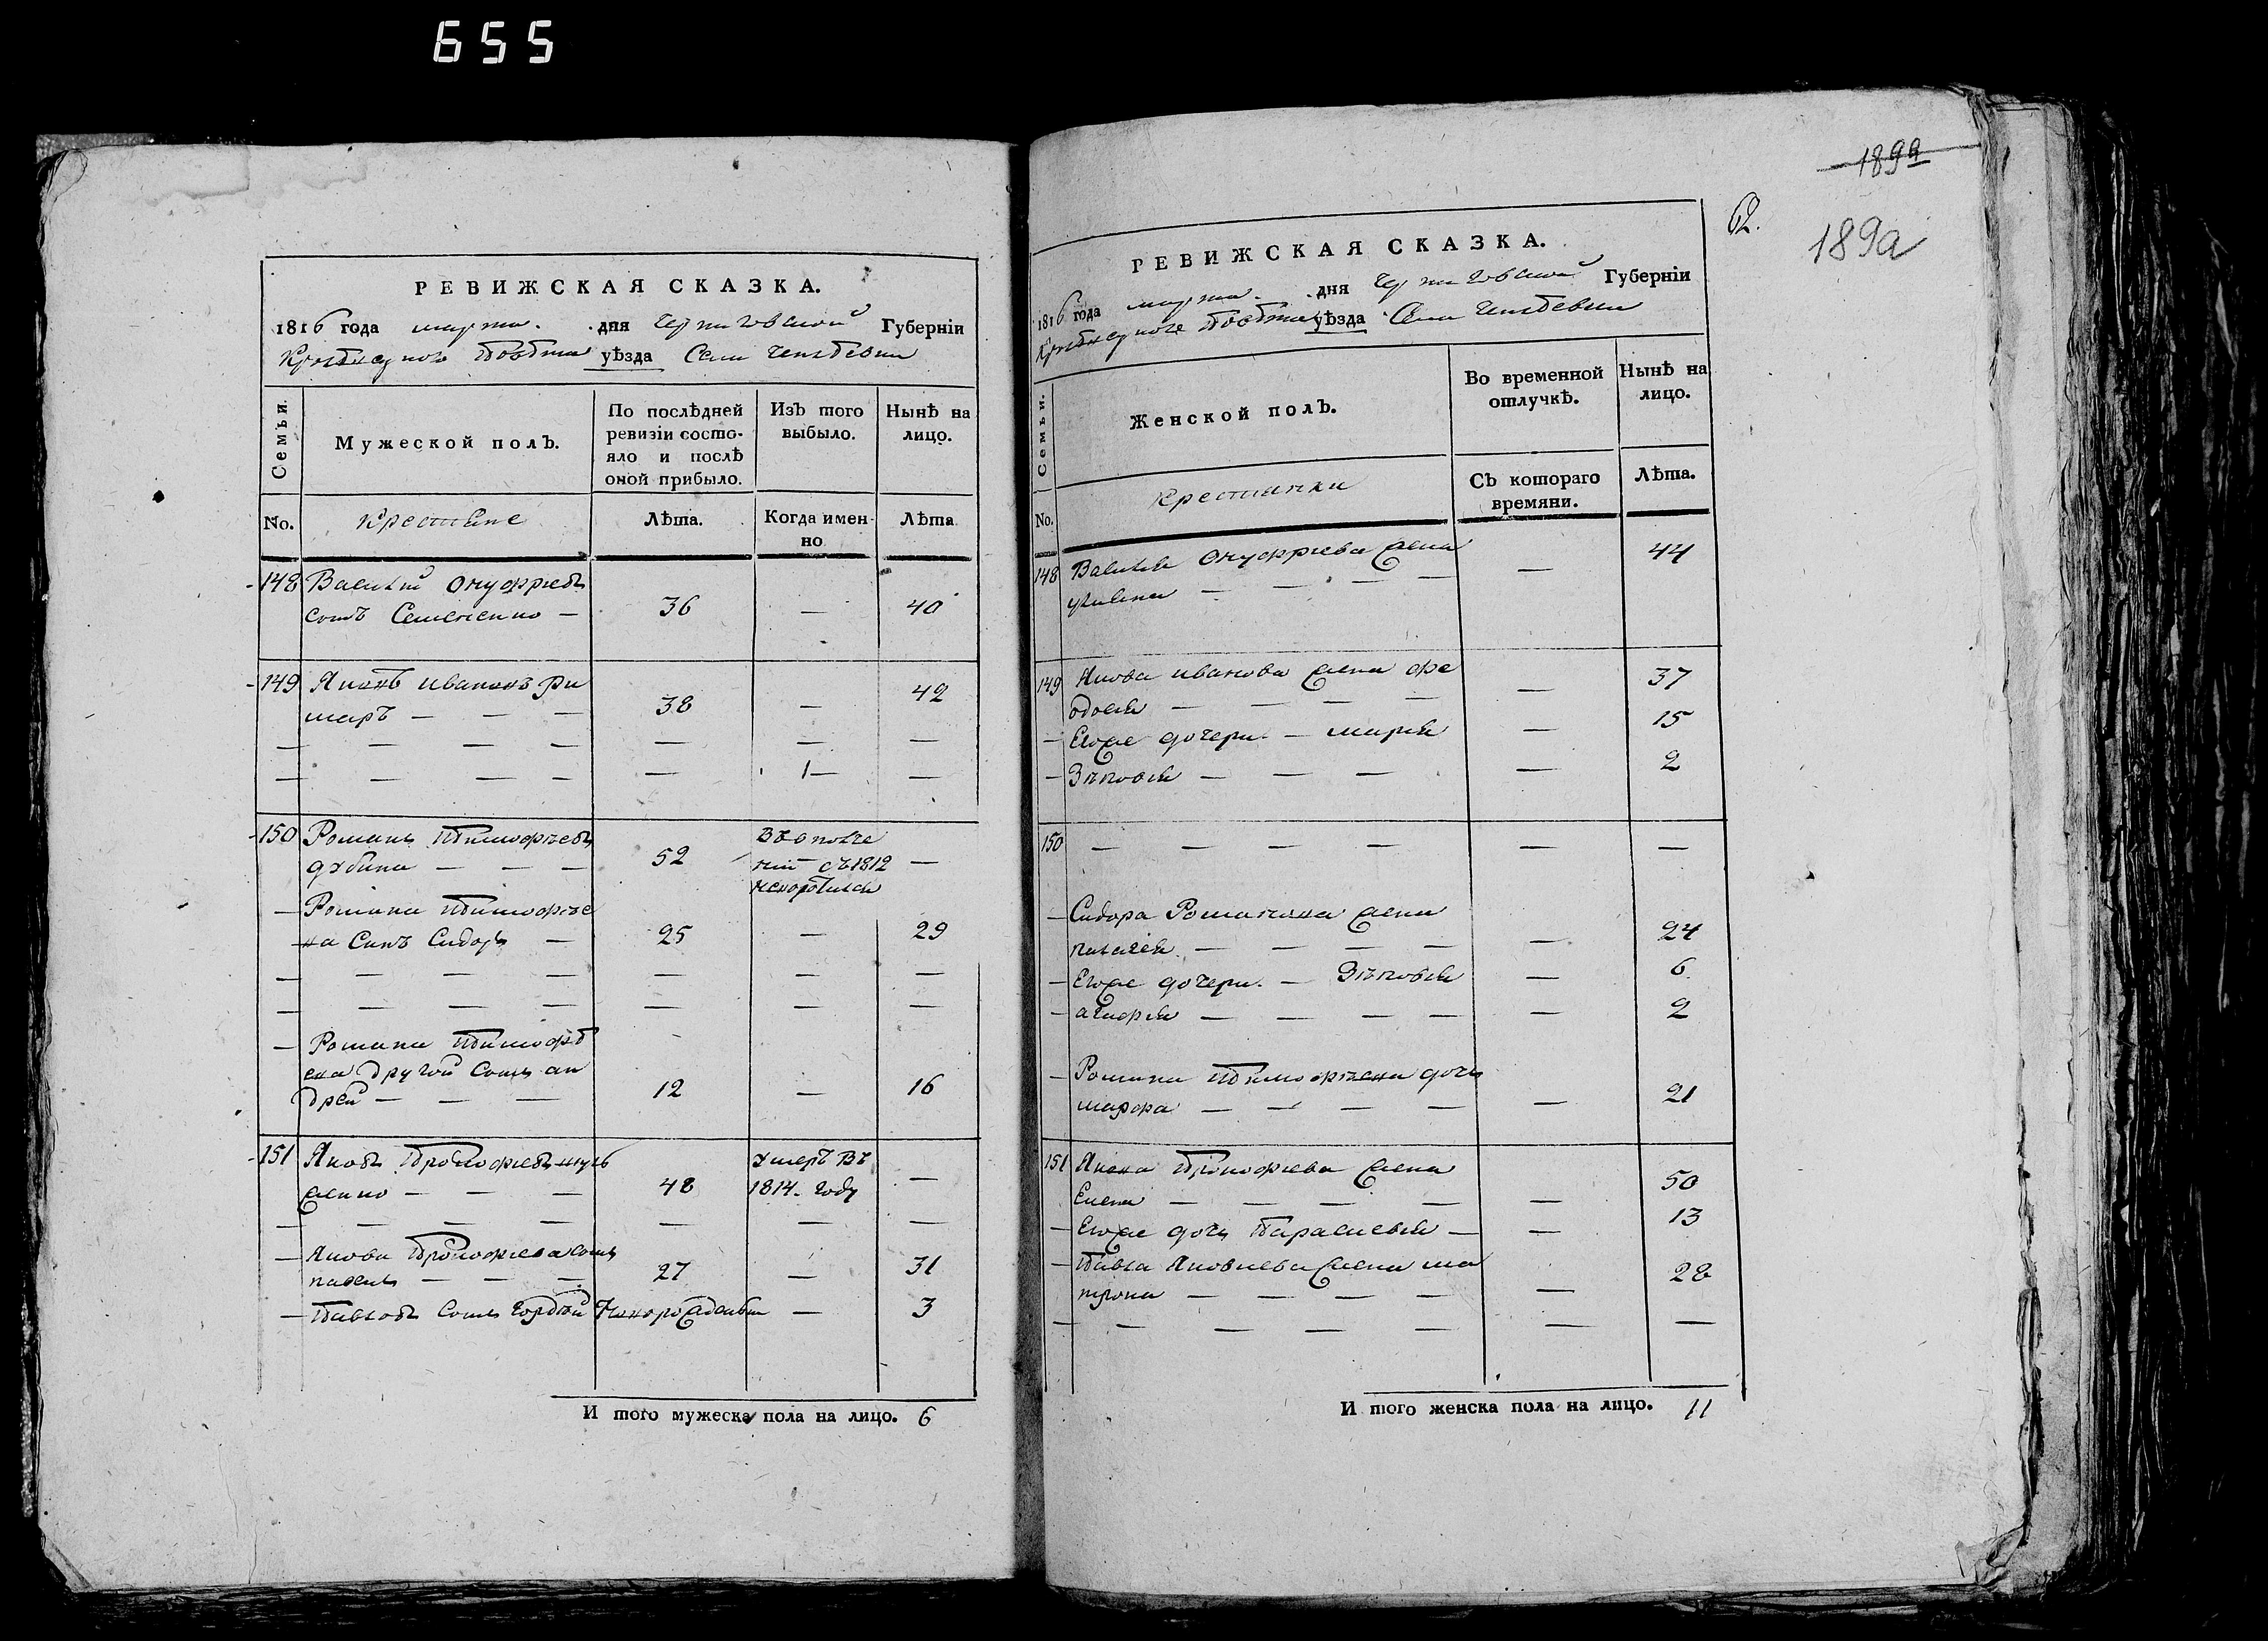 655
РЕВИЖСКАЯ СКАЗКА.
1816 года марта. дня Черниговской Губерніи
повѣта уѣзда Села
Семьи.
Мужеской полъ.
По послѣдней ревизіи состо-
яло и послѣ
оной прибыло.
Изъ того
выбыло.
Нынѣ на
лицо.
No.
Крестяне
Лѣта.
Когда имен-
но
Лѣта
148 Василій Онуфріевъ
сынъ Семененко — 36 — 40
149 Яковъ Ивановъ
— — — 38 — 42
— — — — — — —
— — — — — 1— —
150 Романъ Тимофѣевъ
— — — 52 —
съ 1812
Романа Тимофѣе
ва Синъ Сидоръ — 25 — 29
— — — — — — —
— — — — — — —
— Романа Тимофѣ
ева Другой Сынъ ан
дрей — — — 12 — 16
151 Яковъ Прокофіевъ
— — — 48 умеръ въ 1814. году —
— — — — — — —
— Якова Прокофіева сынъ
павелъ — — — 27 — 31
— Павловъ Сынъ Гордѣй Новорожденъ — 3
И того мужеска пола на лицо. 6
189а
62.
189а
РЕВИЖСКАЯ СКАЗКА.
1816 года марта. дня Черниговской Губерніи
повѣта уѣзда Села
Семьи.
Женской полъ.
Во временной
отлучкѣ.
Нынѣ на
лицо.
No.
Крестянки
Съ котораго
времяни.
Лѣта.
148 Василія Онуфріева жена
— — — — — 44
149 Якова Иванова жена фе
одосія — — — — — 37
— Егоже дочери — марія — 15
— Зѣновія — — — — 2
150 — — — — — —
— Сидора Романова жена
пелагея — — — — — 24
— Егоже дочери. — Зѣновія — 6
— агафія — — — — — 2
— Романа Тимофѣева дочь
марфа — — — — — 21
151 Якова Прокофіева жена
Елена — — — — — 50
— Егоже дочь Параскевія — — 13
— Павла Яковлева жена ма
трона — — — — — 28
— — — — — — —
И того женска пола на лицо. 11